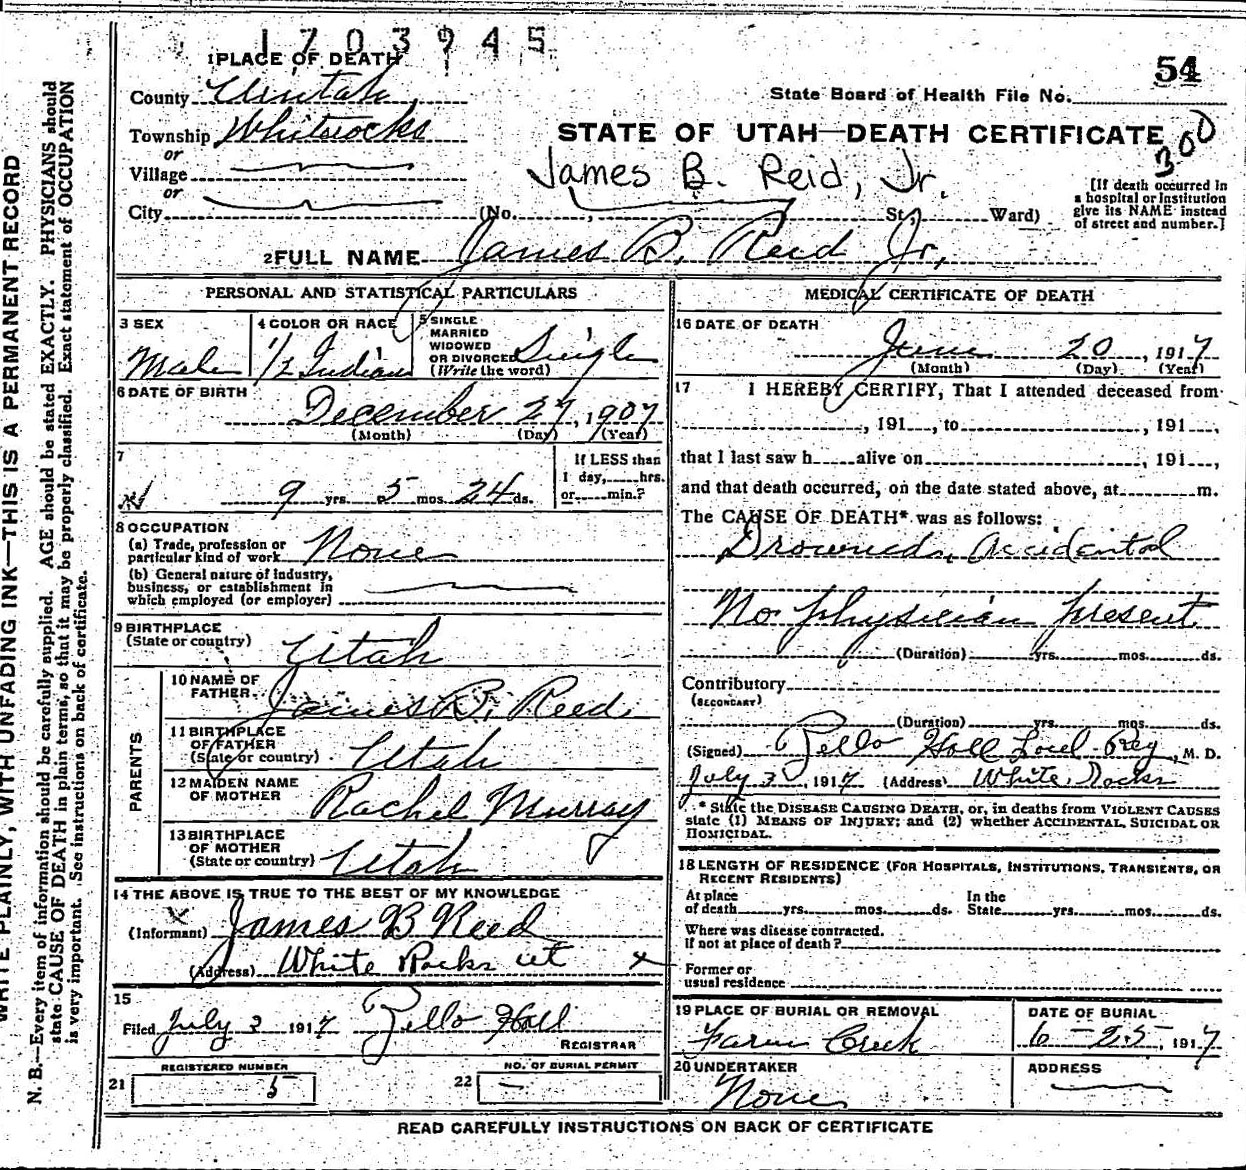 1703945
54
1 PLACE OF DEATH
County Uintah
State Board of Health File No.
Township Whiterocks
STATE OF UTAH—DEATH CERTIFICATE
300
or
Village
James B. Reid, Jr.
or
[If death occurred in
a hospital or institution
give its NAME instead
of street and number.]
City (No. , St., Ward)
2 FULL NAME James B. Reed Jr.
PERSONAL AND STATISTICAL PARTICULARS
3 SEX
Male
4 COLOR OR RACE
1/2 Indian
5 SINGLE
MARRIED
WIDOWED
OR DIVORCED
(Write the word)
Single
6 DATE OF BIRTH
December 27, 1907
(Month) (Day) (Year)
7
9 yrs. 5 mos. 24 ds.
If LESS than
1 day, hrs.
or min.?
8 OCCUPATION
(a) Trade, profession or
particular kind of work None
(b) General nature of industry,
business, or establishment in
which employed (or employer)
9 BIRTHPLACE
(State or country) Utah
PARENTS
10 NAME OF
FATHER James B. Reed
11 BIRTHPLACE
OF FATHER
(State or country) Utah
12 MAIDEN NAME
OF MOTHER Rachel Murray
13 BIRTHPLACE
OF MOTHER
(State or country) Utah
14 THE ABOVE IS TRUE TO THE BEST OF MY KNOWLEDGE
x
(Informant) James B Reed
(Address) White Rocks ut x
15
Filed July 3 1917 Zello Hall
REGISTRAR
REGISTERED NUMBER
21 5
NO. OF BURIAL PERMIT
22 –
MEDICAL CERTIFICATE OF DEATH
16 DATE OF DEATH
June 20, 1917
(Month) (Day) (Year)
17 I HEREBY CERTIFY, That I attended deceased from
, 191 , to , 191 ,
that I last saw h alive on , 191 ,
and that death occurred, on the date stated above, at m.
The CAUSE OF DEATH* was as follows:
Drowned, Accidental
No physician present
(Duration) yrs. mos. ds.
Contributory
(SECONDARY)
(Duration) yrs. mos. ds.
(Signed) Zello Hall Local Reg, M. D.
July 3, 1917 (Address) White Rocks
* State the DISEASE CAUSING DEATH, or, in deaths from VIOLENT CAUSES
state (1) MEANS OF INJURY; and (2) whether ACCIDENTAL, SUICIDAL OR
HOMICIDAL.
18 LENGTH OF RESIDENCE (FOR HOSPITALS, INSTITUTIONS, TRANSIENTS, OR
RECENT RESIDENTS)
At place
of death yrs. mos. ds.
In the
State yrs. mos. ds.
Where was disease contracted,
if not at place of death?
Former or
usual residence
19 PLACE OF BURIAL OR REMOVAL
Farm Creek
DATE OF BURIAL
6-25, 1917
20 UNDERTAKER
None
ADDRESS
READ CAREFULLY INSTRUCTIONS ON BACK OF CERTIFICATE
WRITE PLAINLY, WITH UNFADING INK—THIS IS A PERMANENT RECORD
N. B.—Every item of information should be carefully supplied. AGE should be stated EXACTLY. PHYSICIANS should
state CAUSE OF DEATH in plain terms, so that it may be properly classified. Exact statement of OCCUPATION
is very important. See instructions on back of certificate.